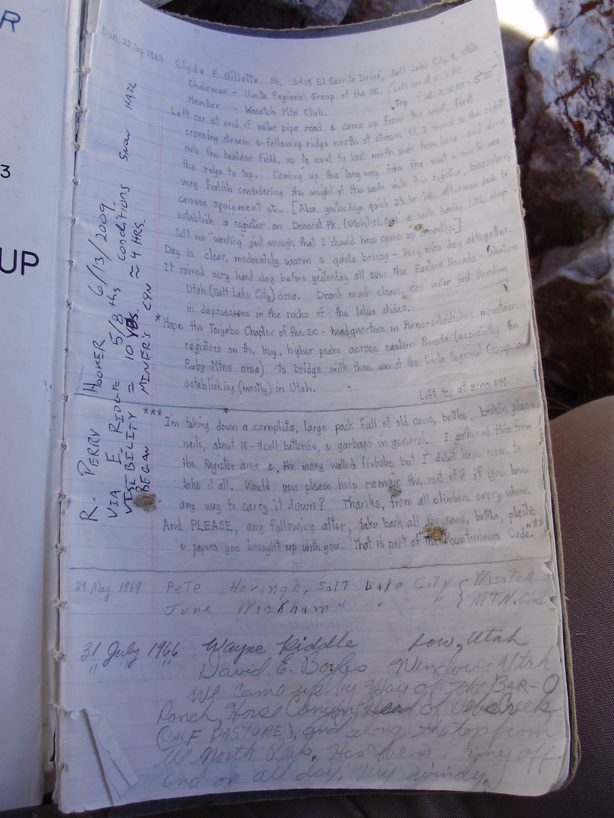 R
3
UP
R. PERRY HOOKER 6/13/2009
VIA E. RIDGE 5/8 ths conditions Snow HAZE
VISIBILITY = 10 YDS.
BEGAN MINER'S CYN ≈ 4 HRS.
Sun, 22 Sep 1963 Clyde F. Gillette, 36, El Cerrito Drive, Salt Lake City 9, Utah
Chairman - Uinta Regional Group of the SC.
Member - Wasatch Mtn Club.
Left car at end of water pipe road & came up from the west, first
crossing stream & following ridge north of stream til I moved to the right
onto the boulder field, up to next to last north peak from here and along
the ridge to top. Coming up the long way from the west & north
very foolish considering the weight of the pack with this register, binoculars,
camera equipment etc. [Also, yesterdays quick
establish a register on Deseret Pk. (Utah) with having little sleep
left me wanting just enough that I should have come up
Day is clear, moderately warm & quite breezy - Very nice day altogether.
It rained very hard day before yesterday all over the Eastern Nevada - Western
Utah (Salt Lake City) area. Drank much clean, cool water just standing
in depressions in the rocks of the talus slides.
* Hope the Toiyabe Chapter of the SC - headquarters in Reno - establishes mountain
registers on the key, higher peaks across eastern Nevada (especially the
Ruby Mtns area) to bridge with those we of the Uinta Regional Group are
establishing (mostly) in Utah.
Left top at 5:00 PM
*** I'm taking down a complete, large pack full of old cans, bottles, broken glass,
nails, about 15 - 4 cell batteries, & garbage in general. I gathered this from
the Register area & the many walled but I didn't have room to
take it all. Would you please help remove the rest of it if you have
any way to carry it down? Thanks, from all climbers every where.
And PLEASE, any following after, take back all the cans, bottles, plastic
& papers you brought up with you. That is part of "The Mountaineers Code." **
29 May 1964 Pete Hovingh, Salt Lake City { Wasatch
June Wickham " " { MTN. Club
31 July 1966 Wayne Riddle Low, Utah
" " " David E. Boggs Wendover, Utah
We came up by Way of the BAR-O
Ranch, Horse Canyon, Head of Creek
(CALF PASTURE), and along the top from
the North Peak. Has been off
and on all day. Very windy.